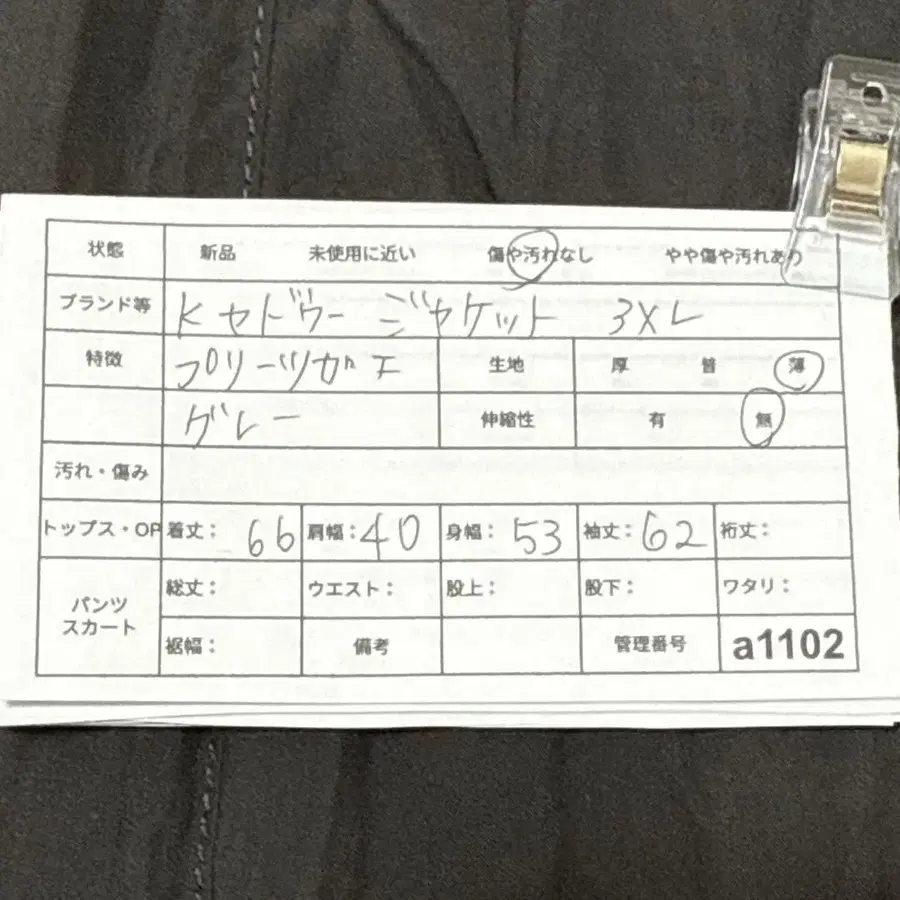 状態 新品 未使用に近い 傷や汚れなし やや傷や汚れあり
ブランド等 Kセドゥー ジャケット 3XL
特徴 プリーツガエ 生地 厚 普 薄
グレー 伸縮性 有 無
汚れ・傷み
トップス・OP 着丈： 66 肩幅：40 身幅： 53 袖丈：62 裄丈：
パンツ スカート 総丈： ウエスト： 股上： 股下： ワタリ：
裾幅： 備考 管理番号 a1102